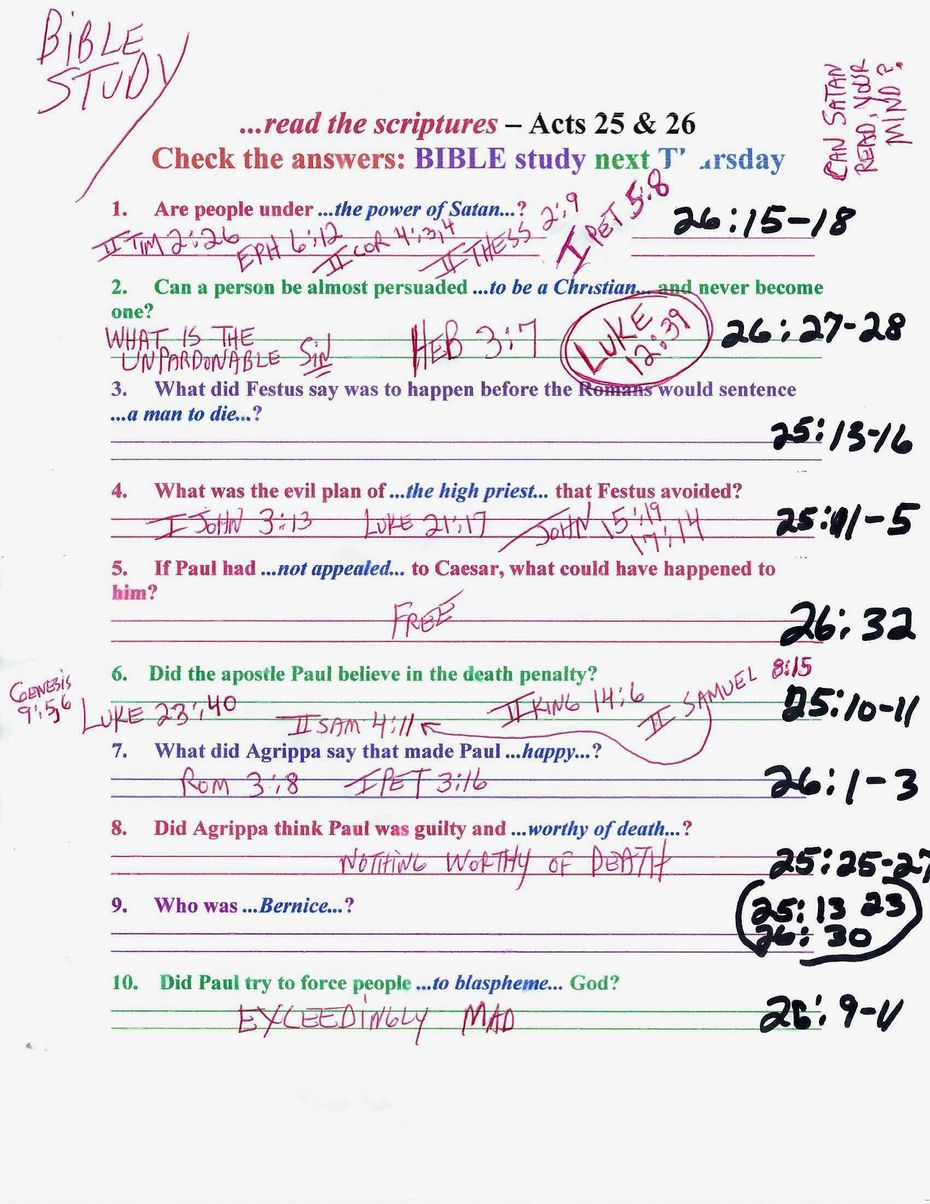 BiBLE
STUDY
CAN SATAN
READ, YOUR
MIND?
...read the scriptures – Acts 25 & 26
Check the answers: BIBLE study next
1. Are people under ...the power of Satan...?
II TIM 2:26 EPH 6:12 II COR 4:3,4 II THESS 2:9 I PET 5:8
26:15-18
2. Can a person be almost persuaded ...to be a Christian... and never become
one?
WHAT IS THE
UNPARDONABLE SiN
HEB 3:7
LUKE
12:39
26:27-28
3. What did Festus say was to happen before the Romans would sentence
...a man to die...?
25:13-16
4. What was the evil plan of ...the high priest... that Festus avoided?
I JOHN 3:13 LUKE 21:17 JOHN 15:19
17:14
25:1-5
5. If Paul had ...not appealed... to Caesar, what could have happened to
him?
FREE
26:32
6. Did the apostle Paul believe in the death penalty?
GENESIS
9:5,6
LUKE 23:40 II SAM 4:11 II KING 14:6 II SAMUEL 8:15
25:10-11
7. What did Agrippa say that made Paul ...happy...?
ROM 3:8 I PET 3:16
26:1-3
8. Did Agrippa think Paul was guilty and ...worthy of death...?
NOTHING WORTHY OF DEATH
25:25-27
9. Who was ...Bernice...?
25:13 23
26:30
10. Did Paul try to force people ...to blaspheme... God?
EXCEEDINGLY MAD
26:9-11